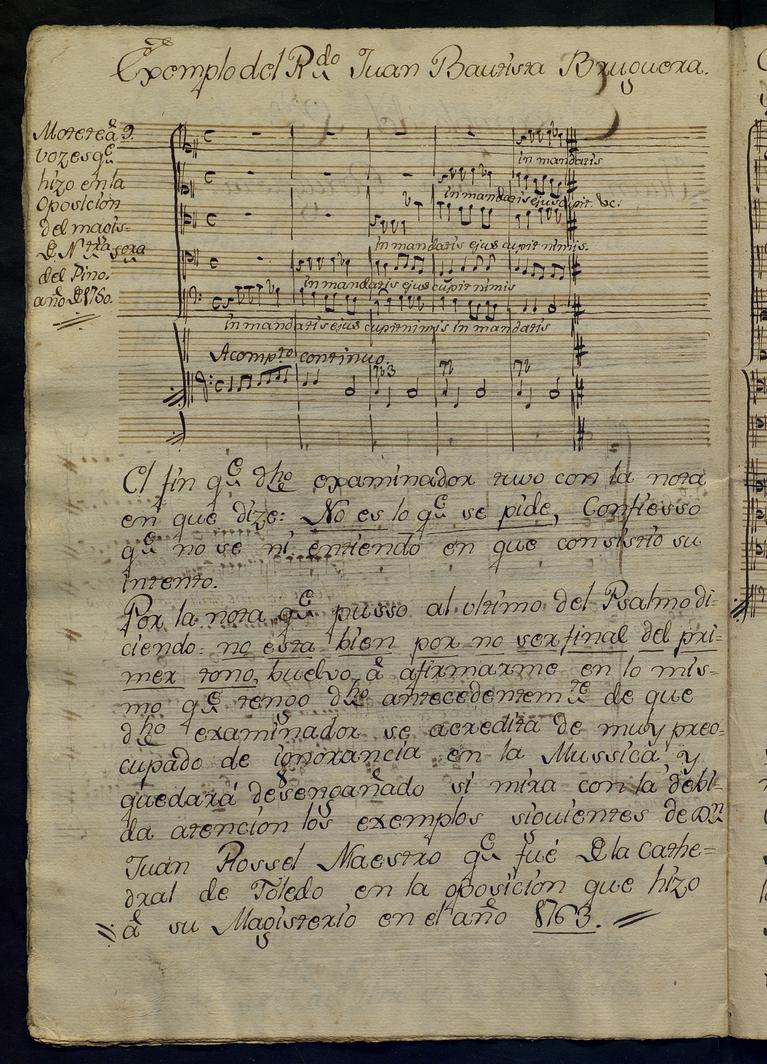 Exemplo del Rdo Juan Bautista Bruguera.
Motete â 9.
vozes qe
hizo en la
Oposicion
del magis-
de Ntra Sora
del Pino.
año de 1760.
in mandatis
in mandatis ejus cupit. &c.
in mandatis ejus cupit nimis.
in mandatis ejus cupit nimis
in mandatis ejus cupit nimis in mandatis
Acompto continuo.
El fin qe dho examinador tuvo con la nota
en que dize: No es lo qe se pide, Confiesso
qe no se ni entiendo en que consistio su
intento.
Por la nota qe pusso al ultimo del Psalmo di-
ciendo: no esta bien por no ser final del pri-
mer tono, buelvo â afirmarme en lo mis-
mo qe tengo dho antecedentemte de que
dho examinador se acredita de muy preo-
cupado de ignorancia en la Mussica, y
quedará desengañado si mira con la debi-
da atencion los exemplos siguientes de Dn
Juan Rossel Maestro qe fué de la Cathe=
dral de Toledo en la oposicion que hizo
â su Magisterio en el año 1763.